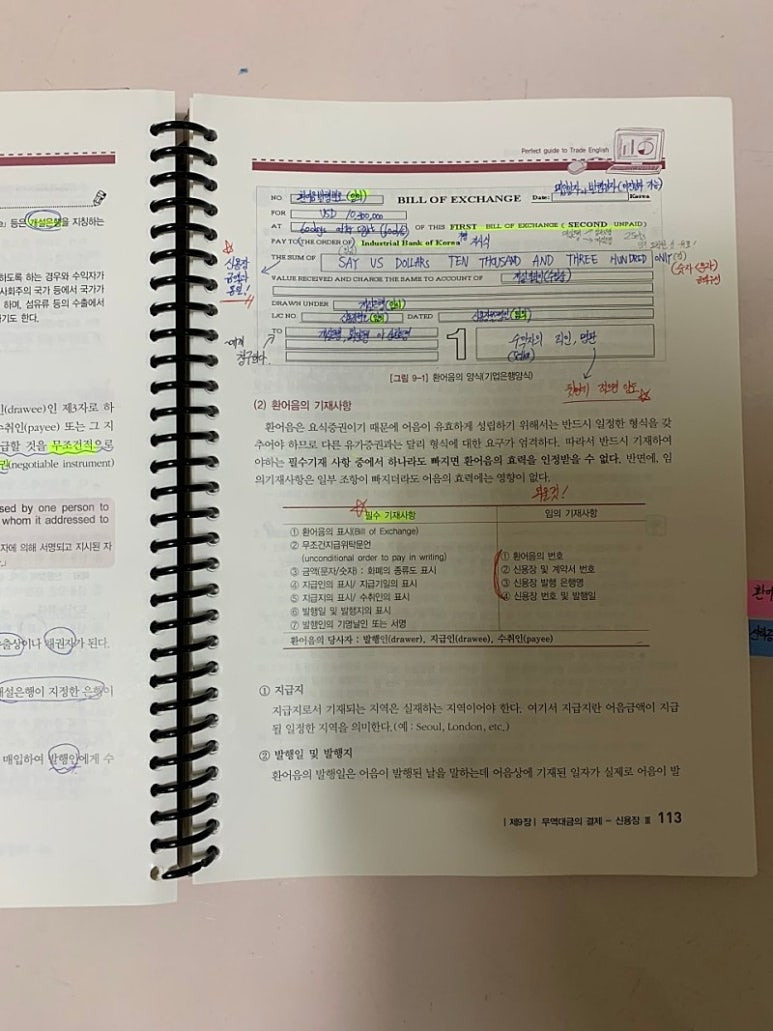 등은 개설은행을 지칭하는
하도록 하는 경우와 수익자가
사회주의 국가 등에서 국가가
하며, 섬유류 등의 수출에서
기도 한다.
(drawee)인 제3자로 하
수취인(payee) 또는 그 지
급할 것을 무조건적으로
(negotiable instrument)
sed by one person to
whom it addressed to
자에 의해 서명되고 지시된 자
출상이나 채권자가 된다.
개설은행이 지정한 은행이
매입하여 발행인에게 수
Perfect guide to Trade English
NO. 환어음발행번호(임의) BILL OF EXCHANGE Date: Korea
FOR USD 10,300,000
AT 60days after sight OF THIS FIRST BILL OF EXCHANGE (SECOND UNPAID)
PAY TO(THE ORDER OF) Industrial Bank of Korea 지시식
THE SUM OF SAY US DOLLARS TEN THOUSAND AND THREE HUNDRED ONLY
(숫자<문자)
신용장
금액과
동일!
VALUE RECEIVED AND CHARGE THE SAME TO ACCOUNT OF
DRAWN UNDER 개설은행(임의)
L/C NO. 신용장번호(임의) DATED 신용장발행일(임의)
TO
~에게
청구한다.
1
수익자의 직인, 명판
[그림 9-1] 환어음의 양식(기업은행양식)
(2) 환어음의 기재사항
환어음은 요식증권이기 때문에 어음이 유효하게 성립하기 위해서는 반드시 일정한 형식을 갖
추어야 하므로 다른 유가증권과는 달리 형식에 대한 요구가 엄격하다. 따라서 반드시 기재하여
야하는 필수기재 사항 중에서 하나라도 빠지면 환어음의 효력을 인정받을 수 없다. 반면에, 임
의기재사항은 일부 조항이 빠지더라도 어음의 효력에는 영향이 없다.
외울것!
필수 기재사항 임의 기재사항
① 환어음의 표시(Bill of Exchange)
② 무조건지급위탁문언
(unconditional order to pay in writing)
③ 금액(문자/숫자) : 화폐의 종류도 표시
④ 지급인의 표시/ 지급기일의 표시
⑤ 지급지의 표시/ 수취인의 표시
⑥ 발행일 및 발행지의 표시
⑦ 발행인의 기명날인 또는 서명
① 환어음의 번호
② 신용장 및 계약서 번호
③ 신용장 발행 은행명
④ 신용장 번호 및 발행일
환어음의 당사자 : 발행인(drawer), 지급인(drawee), 수취인(payee)
① 지급지
지급지로서 기재되는 지역은 실재하는 지역이어야 한다. 여기서 지급지란 어음금액이 지급
될 일정한 지역을 의미한다.(예 : Seoul, London, etc.)
② 발행일 및 발행지
환어음의 발행일은 어음이 발행된 날을 말하는데 어음상에 기재된 일자가 실제로 어음이 발
| 제9장 | 무역대금의 결제 - 신용장 Ⅲ 113